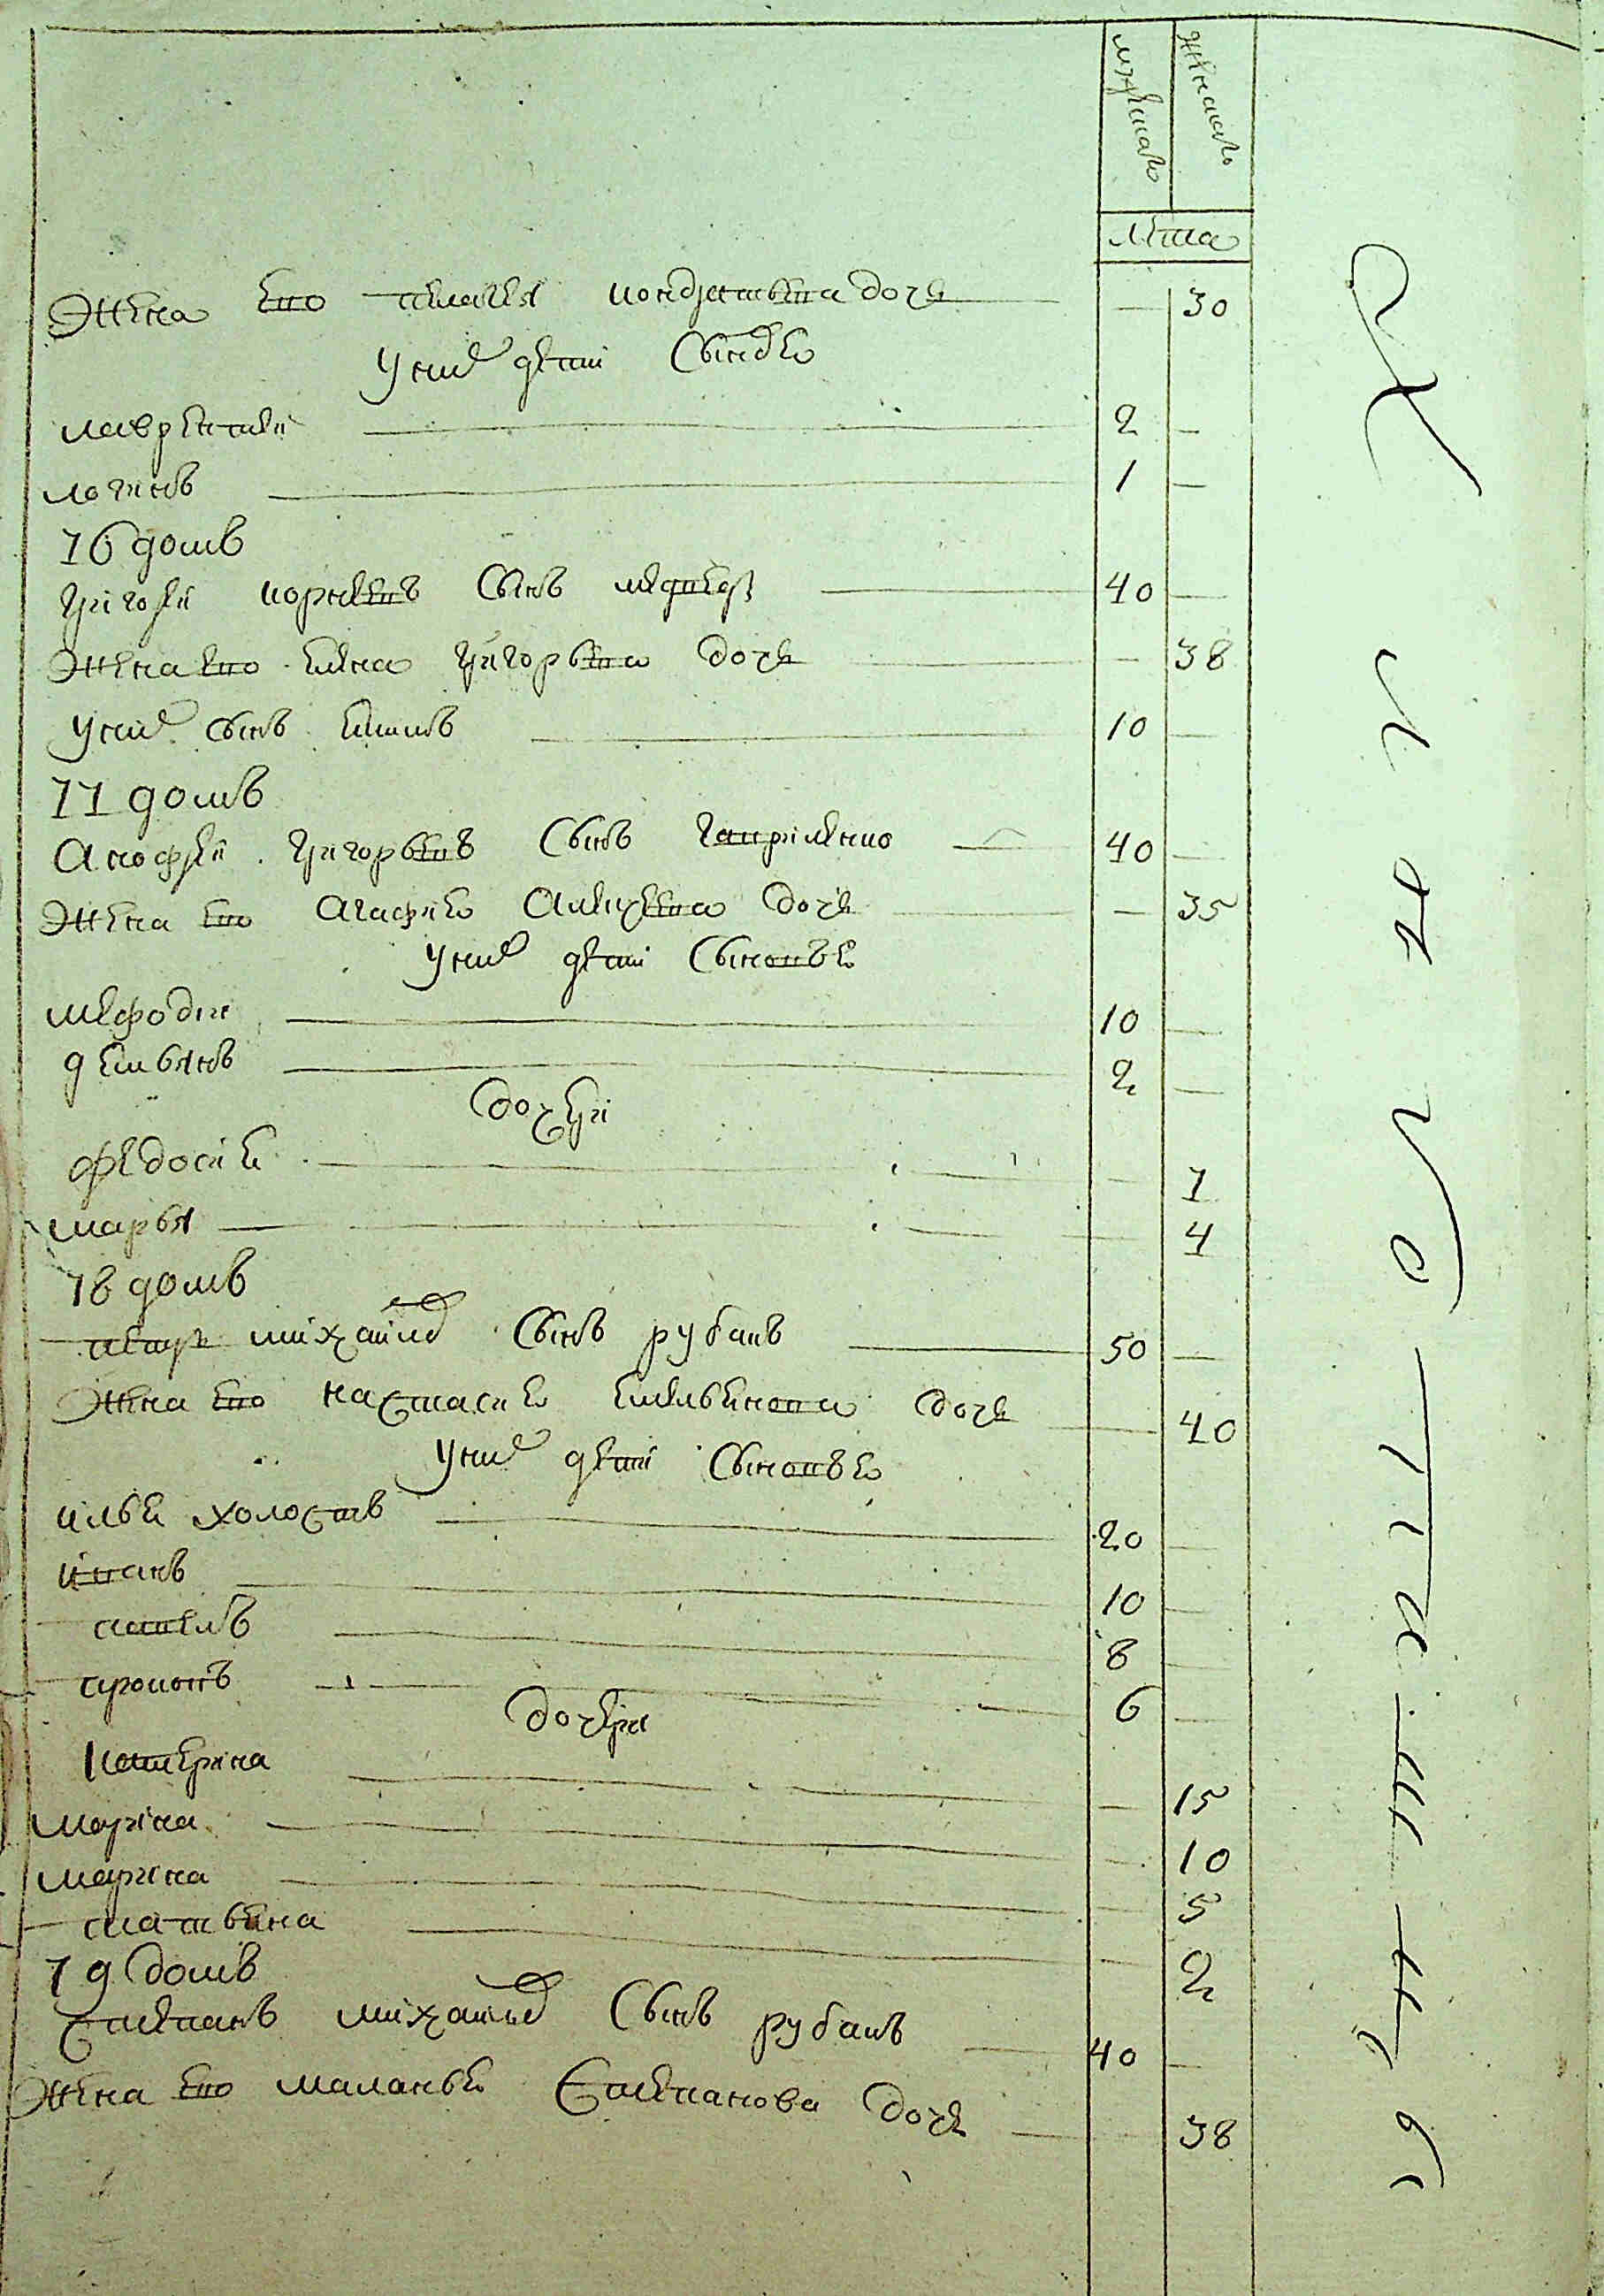 мужескъ
женскъ
Лѣта
Жена ево Пелагея Кондратьева дочь — 30
У нихъ дѣти сыновья
Лаврентѣй 2 —
Логинъ 1 —
16 домъ
Григорѣй Корнѣевъ сынъ 40 —
Жена ево Елена Григорьева дочь — 38
У нихъ сынъ 10 —
17 домъ
Анофрѣй Григорьевъ сынъ Гавриленко 40 —
Жена ево Агафия Алексѣева дочь — 35
У нихъ дѣти сыновья
Мефодии 10 —
Демьянъ 2 —
Дочери
Федосия — 7
Марья — 4
18 домъ
Петръ Михайловъ сынъ Рубанъ 50 —
Жена ево Настасия Емельянова дочь — 40
У нихъ дѣти сыновья
Илья холостъ 20 —
Иванъ 10 —
Павелъ 8 —
6 —
Дочери
Катерина — 15
Марина — 10
Марина — 5
— 2
19 домъ
Степанъ Михайловъ сынъ Рубанъ 40 —
Жена ево Маланья Степанова дочь — 38